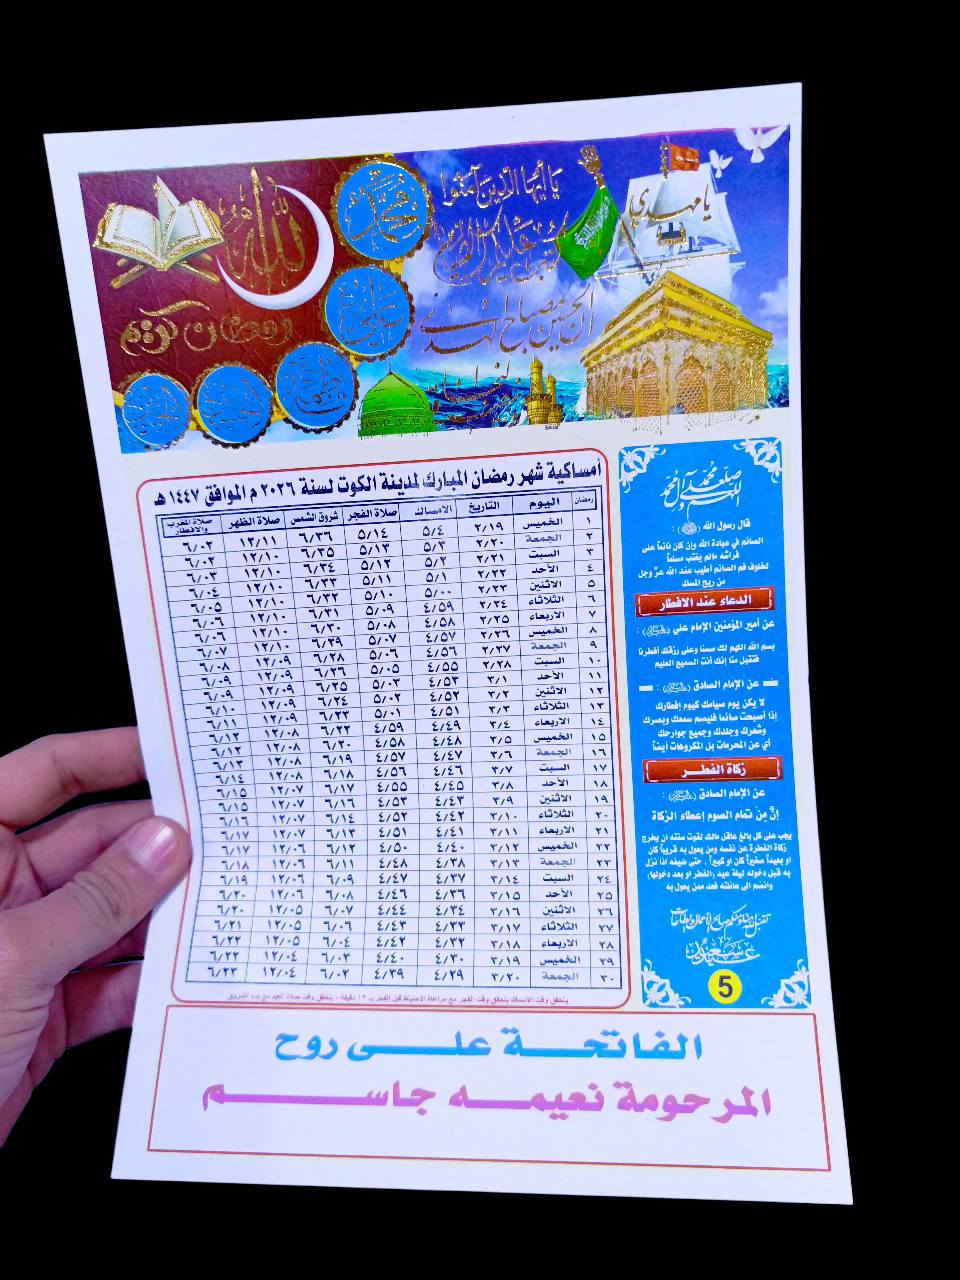 الله
محمد
علي
رمضان كريم
يا أيها الذين آمنوا
إن الحسين مصباح الهدى
يا مهدي
أمساكية شهر رمضان المبارك لمدينة الكوت لسنة ٢٠٢٦ م الموافق ١٤٤٧ هـ
رمضان اليوم التاريخ الامساك صلاة الفجر شروق الشمس صلاة الظهر صلاة المغرب والافطار
١ الخميس ٢/١٩ ٥/٤ ٥/١٤ ٦/٣٦ ١٢/١١ ٦/٠٢
٢ الجمعة ٢/٢٠ ٥/٣ ٥/١٣ ٦/٣٥ ١٢/١٠ ٦/٠٢
٣ السبت ٢/٢١ ٥/٢ ٥/١٢ ٦/٣٤ ١٢/١٠ ٦/٠٣
٤ الأحد ٢/٢٢ ٥/١ ٥/١١ ٦/٣٣ ١٢/١٠ ٦/٠٤
٥ الاثنين ٢/٢٣ ٥/٠٠ ٥/١٠ ٦/٣٢ ١٢/١٠ ٦/٠٥
٦ الثلاثاء ٢/٢٤ ٤/٥٩ ٥/٠٩ ٦/٣١ ١٢/١٠ ٦/٠٦
٧ الاربعاء ٢/٢٥ ٤/٥٨ ٥/٠٨ ٦/٣٠ ١٢/١٠ ٦/٠٦
٨ الخميس ٢/٢٦ ٤/٥٧ ٥/٠٧ ٦/٢٩ ١٢/١٠ ٦/٠٧
٩ الجمعة ٢/٢٧ ٤/٥٦ ٥/٠٦ ٦/٢٨ ١٢/٠٩ ٦/٠٨
١٠ السبت ٢/٢٨ ٤/٥٥ ٥/٠٥ ٦/٢٦ ١٢/٠٩ ٦/٠٩
١١ الأحد ٣/١ ٤/٥٣ ٥/٠٣ ٦/٢٥ ١٢/٠٩ ٦/٠٩
١٢ الاثنين ٣/٢ ٤/٥٢ ٥/٠٢ ٦/٢٤ ١٢/٠٩ ٦/١٠
١٣ الثلاثاء ٣/٣ ٤/٥١ ٥/٠١ ٦/٢٣ ١٢/٠٩ ٦/١١
١٤ الاربعاء ٣/٤ ٤/٤٩ ٤/٥٩ ٦/٢٢ ١٢/٠٨ ٦/١٢
١٥ الخميس ٣/٥ ٤/٤٨ ٤/٥٨ ٦/٢٠ ١٢/٠٨ ٦/١٢
١٦ الجمعة ٣/٦ ٤/٤٧ ٤/٥٧ ٦/١٩ ١٢/٠٨ ٦/١٣
١٧ السبت ٣/٧ ٤/٤٦ ٤/٥٦ ٦/١٨ ١٢/٠٨ ٦/١٤
١٨ الأحد ٣/٨ ٤/٤٥ ٤/٥٥ ٦/١٧ ١٢/٠٧ ٦/١٥
١٩ الاثنين ٣/٩ ٤/٤٣ ٤/٥٣ ٦/١٦ ١٢/٠٧ ٦/١٥
٢٠ الثلاثاء ٣/١٠ ٤/٤٢ ٤/٥٢ ٦/١٤ ١٢/٠٧ ٦/١٦
٢١ الاربعاء ٣/١١ ٤/٤١ ٤/٥١ ٦/١٣ ١٢/٠٧ ٦/١٧
٢٢ الخميس ٣/١٢ ٤/٤٠ ٤/٥٠ ٦/١٢ ١٢/٠٦ ٦/١٧
٢٣ الجمعة ٣/١٣ ٤/٣٨ ٤/٤٨ ٦/١١ ١٢/٠٦ ٦/١٨
٢٤ السبت ٣/١٤ ٤/٣٧ ٤/٤٧ ٦/٠٩ ١٢/٠٦ ٦/١٩
٢٥ الأحد ٣/١٥ ٤/٣٦ ٤/٤٦ ٦/٠٨ ١٢/٠٦ ٦/٢٠
٢٦ الاثنين ٣/١٦ ٤/٣٤ ٤/٤٤ ٦/٠٧ ١٢/٠٥ ٦/٢٠
٢٧ الثلاثاء ٣/١٧ ٤/٣٣ ٤/٤٣ ٦/٠٦ ١٢/٠٥ ٦/٢١
٢٨ الاربعاء ٣/١٨ ٤/٣٢ ٤/٤٢ ٦/٠٤ ١٢/٠٥ ٦/٢٢
٢٩ الخميس ٣/١٩ ٤/٣٠ ٤/٤٠ ٦/٠٣ ١٢/٠٤ ٦/٢٢
٣٠ الجمعة ٣/٢٠ ٤/٢٩ ٤/٣٩ ٦/٠٢ ١٢/٠٤ ٦/٢٣
اللهم صل على محمد وآل محمد
قال رسول الله (ﷺ) :
الصائم في عبادة الله وإن كان نائماً على
فراشه مالم يغتب مسلماً
لخلوف فم الصائم أطيب عند الله عزّ وجل
من ريح المسك
الدعاء عند الافطار
عن أمير المؤمنين الإمام علي :
بسم الله اللهم لك صمنا وعلى رزقك أفطرنا
فتقبل منّا إنك أنت السميع العليم
عن الإمام الصادق :
لا يكن يوم صيامك كيوم إفطارك
إذا أصبحت صائماً فليصم سمعك وبصرك
وشعرك وجلدك وجميع جوارحك
أي عن المحرمات بل المكروهات أيضاً
زكاة الفطـر
عن الإمام الصادق :
إنَّ مِنْ تمام الصوم إعطاء الزكاة
يجب على كل بالغ عاقل مالك لقوت سنته ان يخرج
زكاة الفطرة عن نفسه ومن يعول به قريباً كان
او بعيداً صغيراً كان او كبيراً ، حتى ضيفه اذا نزل
به قبل دخوله ليلة عيد (الفطر او بعد دخولها)
وانضم الى عائلته فعد ممن يعول به
5
الفاتحـــة علـــى روح
المرحومة نعيمـــه جاســـم